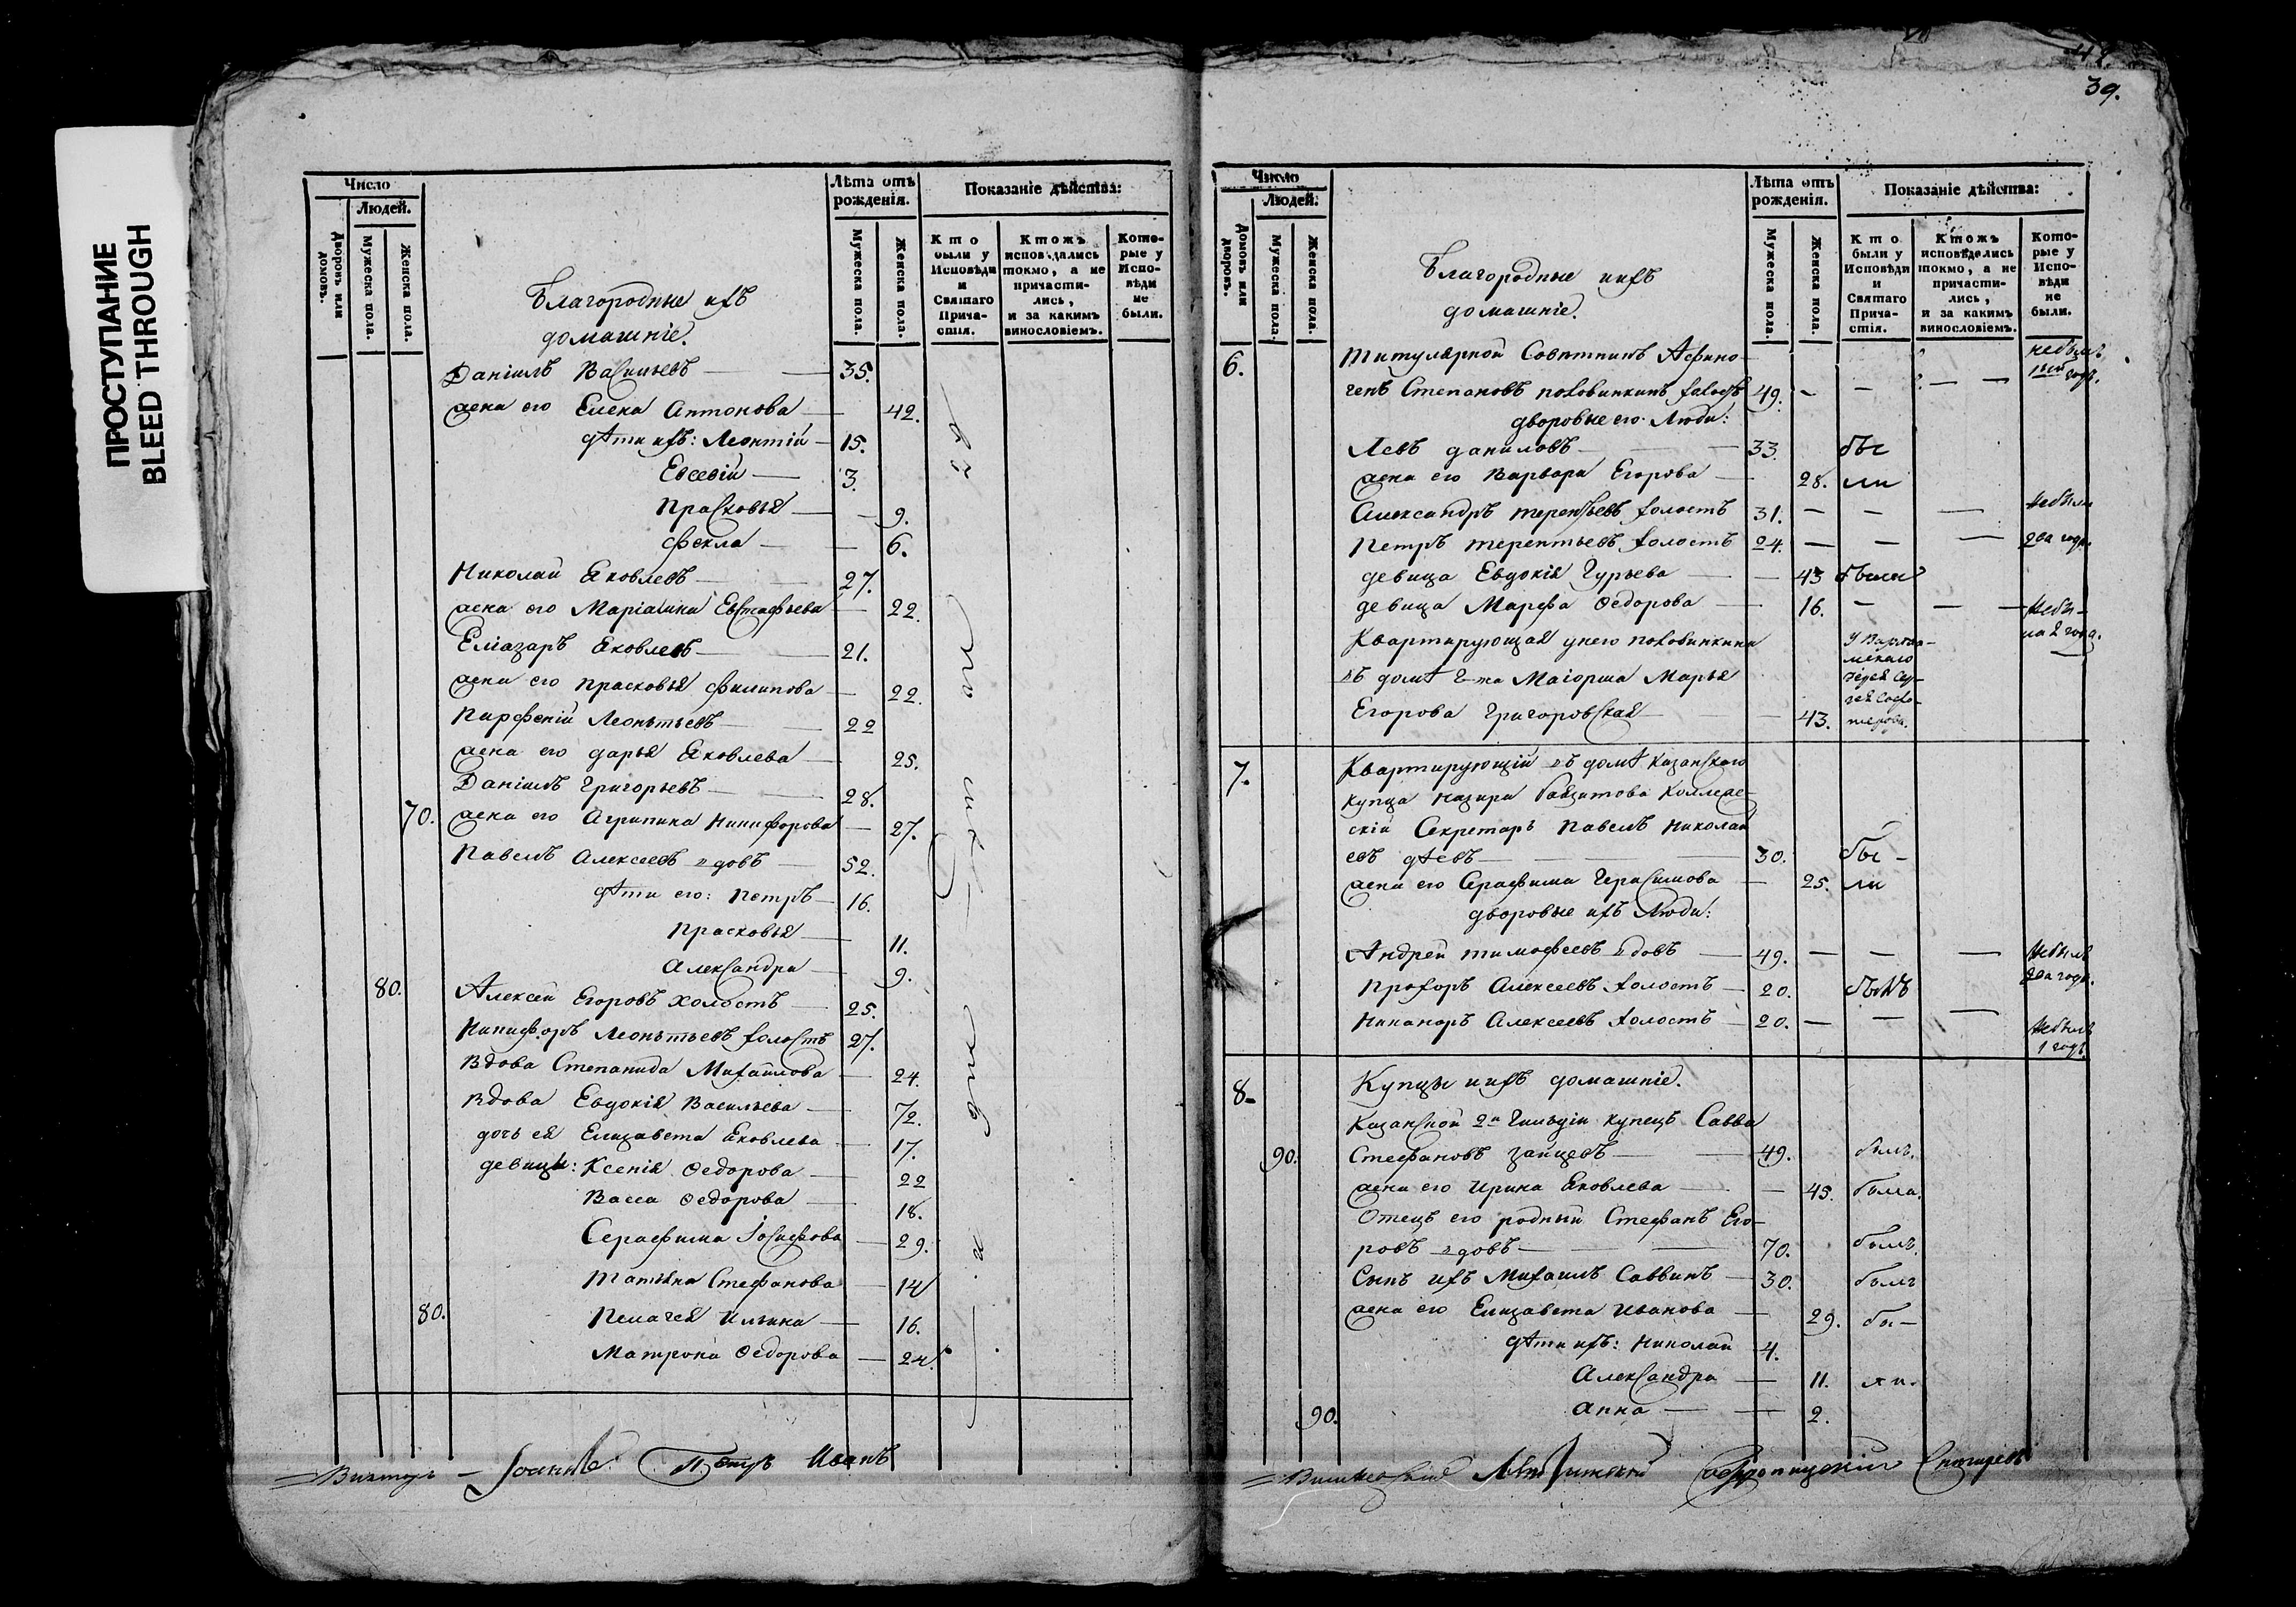 ПРОСТУПАНИЕ
BLEED THROUGH
Число
Людей.
Дворовъ или домовъ.
Мужеска пола.
Женска пола.
Лѣта отъ рожденія.
Мужеска пола.
Женска пола.
Показаніе дѣйства:
Кто были у Исповѣди и Святаго Причастія.
Ктожъ исповѣдались токмо, а не причастились, и за какимъ винословіемъ.
Которые у Исповѣди не были.
Благородные ихъ
домашніе.
Даніилъ Васильевъ — 35.
жена его Елена Антонова — 42.
дѣти ихъ: Леонтій — 15.
Евсевій — 3.
Прасковья — 9.
Фекла — 6.
Николай Яковлевъ — 27.
жена его Маріамна Евстафьева — 22.
Еліазаръ Яковлевъ — 21.
жена его Прасковья Филипова — 22.
Парфеній Леонтьевъ — 22
жена его Дарья Яковлева — 25.
Даніилъ Григорьевъ — 28.
70. жена его Агрипина Никифорова — 27.
Павелъ Алексеевъ вдовъ — 52.
дѣти его: Петръ — 16.
Прасковья — 11.
Александра — 9.
80. Алексей Егоровъ холостъ — 25.
Никифоръ Леонтьевъ холостъ 27.
Вдова Степанида Михайлова — 24.
Вдова Евдокія Васильева — 72.
дочь ея Елизавета Яковлева — 17.
девицы: Ксенія Федорова — 22
Васса Федорова — 18.
Серафима Іосифова — 29.
Татьяна Стефанова — 14
80. Пелагея Ильина — 16.
Матрона Федорова — 24.
Іоаннъ Петръ Иванъ
39.
Число
Людей.
Домовъ или дворовъ.
Мужеска пола.
Женска пола.
Лѣта отъ рожденія.
Мужеска пола.
Женска пола.
Показаніе дѣйства:
Кто были у Исповѣди и Святаго Причастія.
Ктожъ исповѣдались токмо, а не причастились, и за какимъ винословіемъ.
Которые у Исповѣди не были.
Благородные и ихъ
домашніе.
6. Титулярной Советникъ Афино- небылъ
генъ Степановъ Половинкинъ холостъ 49. — годъ.
дворовые его Люди:
Левъ Даниловъ — 33. бы
жена его Варвара Егорова — 28. ли
Александръ Терентьевъ холостъ 31. — небыли
Петръ Терентьевъ холостъ 24. — два года.
девица Евдокія Гурьева — 43 была
девица Марфа Федорова — 16. — небы-
ла 2 года.
Квартирующая у него Половинкина
въ домѣ Г-жа Маіорша Марья
Егорова Григоровская — 43.
7. Квартирующій въ домѣ Казанскаго
купца Назира Коллеж-
скій Секретарь Павелъ Николай
евъ — 30. бы-
жена его Серафима Герасимова — 25. ли
дворовые ихъ Люди:
Андрей Тимофеевъ вдовъ — 49. — небылъ
два года.
Прохоръ Алексеевъ холостъ — 20. былъ
Никаноръ Алексеевъ холостъ — 20. — небылъ
1 годъ.
8. Купцы и ихъ домашніе.
Казанской 2й Гильдіи купецъ Савва
90. Стефановъ Зайцевъ — 49. былъ.
жена его Ирина Яковлева — 45. была.
Отецъ его родный Стефанъ Его-
ровъ вдовъ — 70. былъ.
Сынъ ихъ Михаилъ Саввинъ — 30. былъ
жена его Елизавета Иванова — 29. бы-
дѣти ихъ: Николай 4.
Александра — 11. ли.
90. Анна — 2.